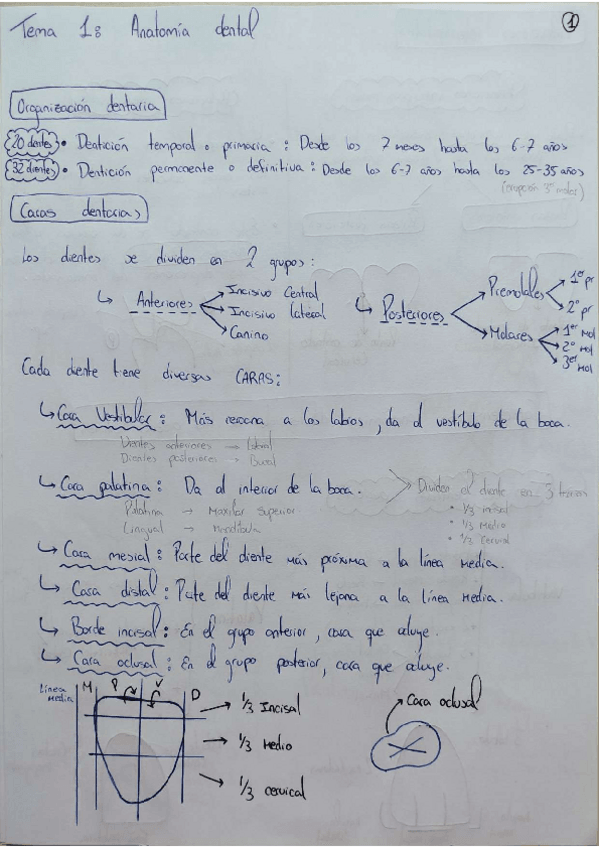 Tema 1: Anatomía dental
1
Organización dentaria
20 dientes • Dentición temporal o primaria: Desde los 7 meses hasta los 6-7 años
32 dientes • Dentición permanente o definitiva: Desde los 6-7 años hasta los 25-35 años
(erupción 3er molar)
Caras dentarias
Los dientes se dividen en 2 grupos:
↳ Anteriores → Incisivo Central
→ Incisivo lateral
→ Canino
↳ Posteriores → Premolares → 1er pr
→ 2º pr
→ Molares → 1er mol
→ 2º mol
→ 3er mol
Cada diente tiene diversas CARAS:
↳ Cara Vestibular: Más cercana a los labios, da al vestíbulo de la boca.
Dientes anteriores → Labial
Dientes posteriores → Bucal
↳ Cara palatina: Da al interior de la boca.
Palatina → Maxilar superior
Lingual → Mandíbula
Dividen el diente en 3 tercios
• 1/3 incisal
• 1/3 Medio
• 1/3 Cervical
↳ Cara mesial: Parte del diente más próxima a la línea media.
↳ Cara distal: Parte del diente más lejana a la línea media.
↳ Borde incisal: En el grupo anterior, cara que ocluye.
↳ Cara oclusal: En el grupo posterior, cara que ocluye.
Línea media
M
P
V
D
→ 1/3 Incisal
→ 1/3 Medio
→ 1/3 cervical
Cara oclusal